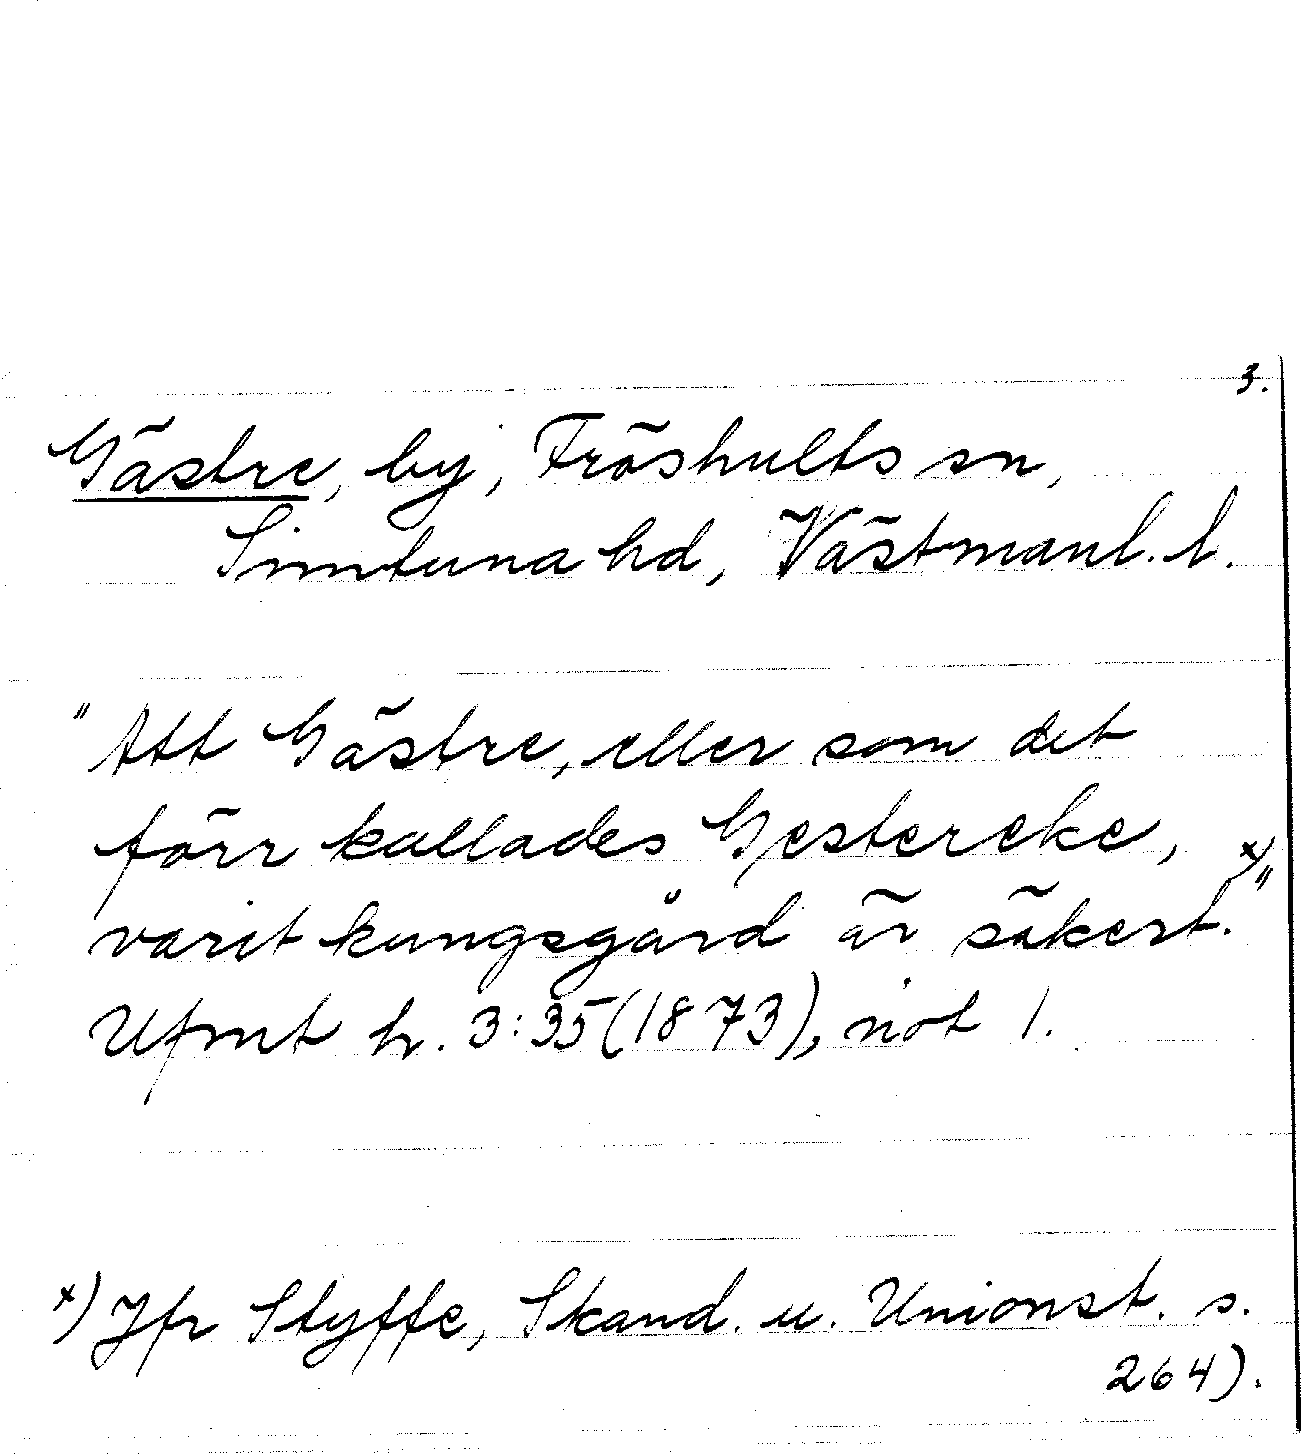 3.
Gästre, by, Fröshults sn,
Simtuna hd, Västmanl. l.
"Att Gästre, eller som det
förr kallades Gestereke,
varit kungsgård är säkert. x)"
Ufmt h. 3:35 (1873), not 1.
x) Jfr Styffe, Skand. u. Unionst. s.
264).